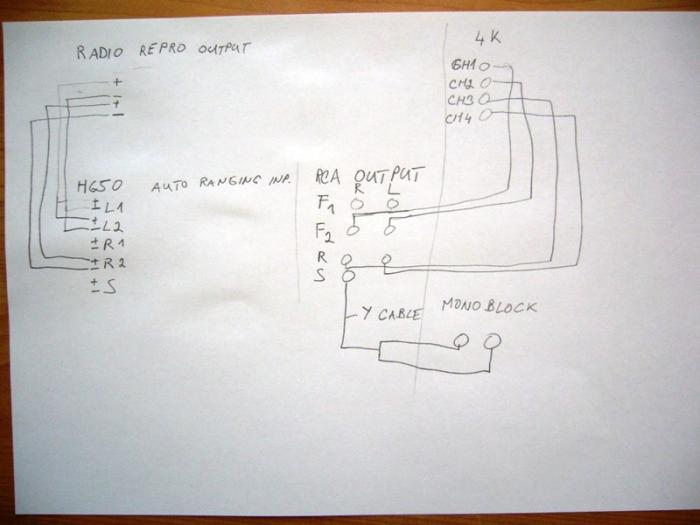 RADIO REPRO OUTPUT
+
-
+
-
H650 AUTO RANGING INP.
± L1
± L2
± R1
± R2
± S
4K
CH1
CH2
CH3
CH4
RCA OUTPUT
R L
F1
F2
R
S
Y CABLE
MONOBLOCK